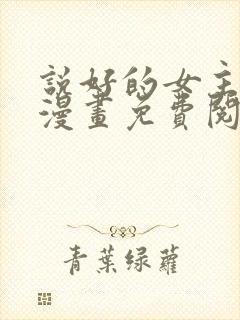 說好的女主
漫畫免費閱
青葉綠蘿